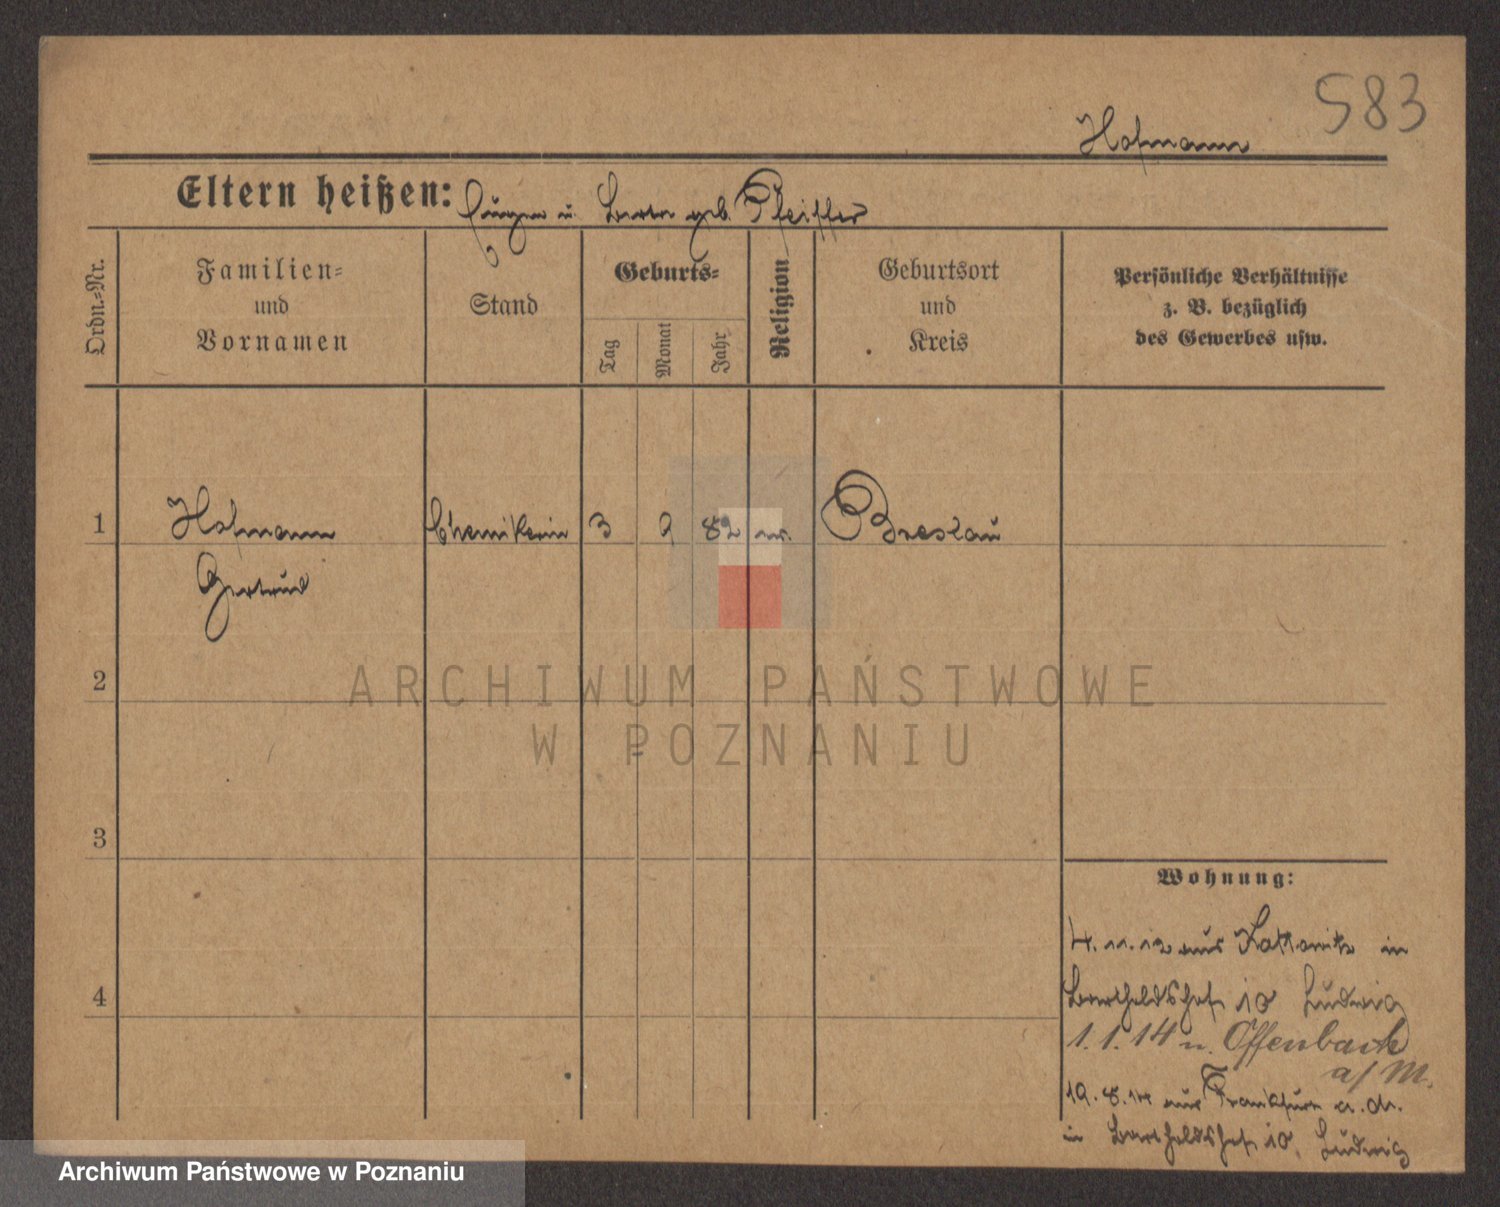 583
Hofmann
Eltern heißen: Eugen u. Berta geb. Pfeiffer
Ordn.=Nr.
Familien=
und
Vornamen
Stand
Geburts=
Tag
Monat
Jahr
Religion
Geburtsort
und
Kreis
Persönliche Verhältnisse
z. B. bezüglich
des Gewerbes usw.
1 Hofmann Chemikerin 3 9 82 Breslau
Gertrud
2
ARCHIWUM PAŃSTWOWE
W POZNANIU
3
Wohnung:
4. 11. 12 aus Kattowitz in
4
Bartholdshof 10 Ludwig
1. 1. 14 n. Offenbach
a/M.
19. 8. 14 aus Frankfurt a. M.
in Bartholdshof 10. Ludwig
Archiwum Państwowe w Poznaniu